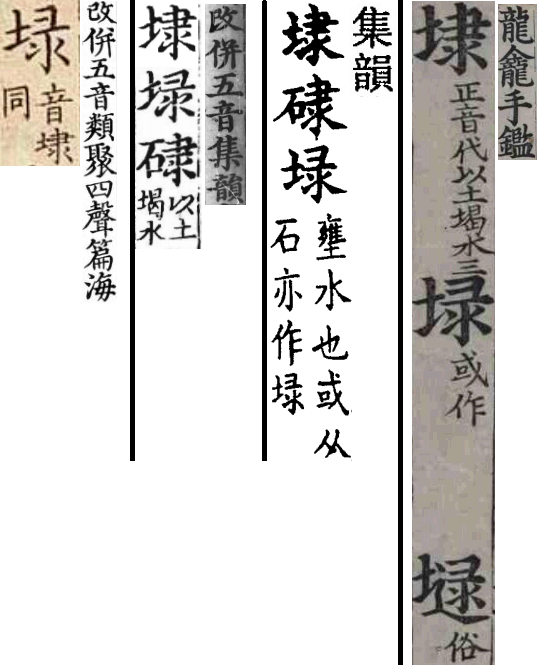 龍龕手鑑
埭正音代以土堨水三
或作
俗
集韻
埭
壅水也或从
石亦作
改併五音集韻
埭
以土
堨水
改併五音類聚四聲篇海
音埭
同